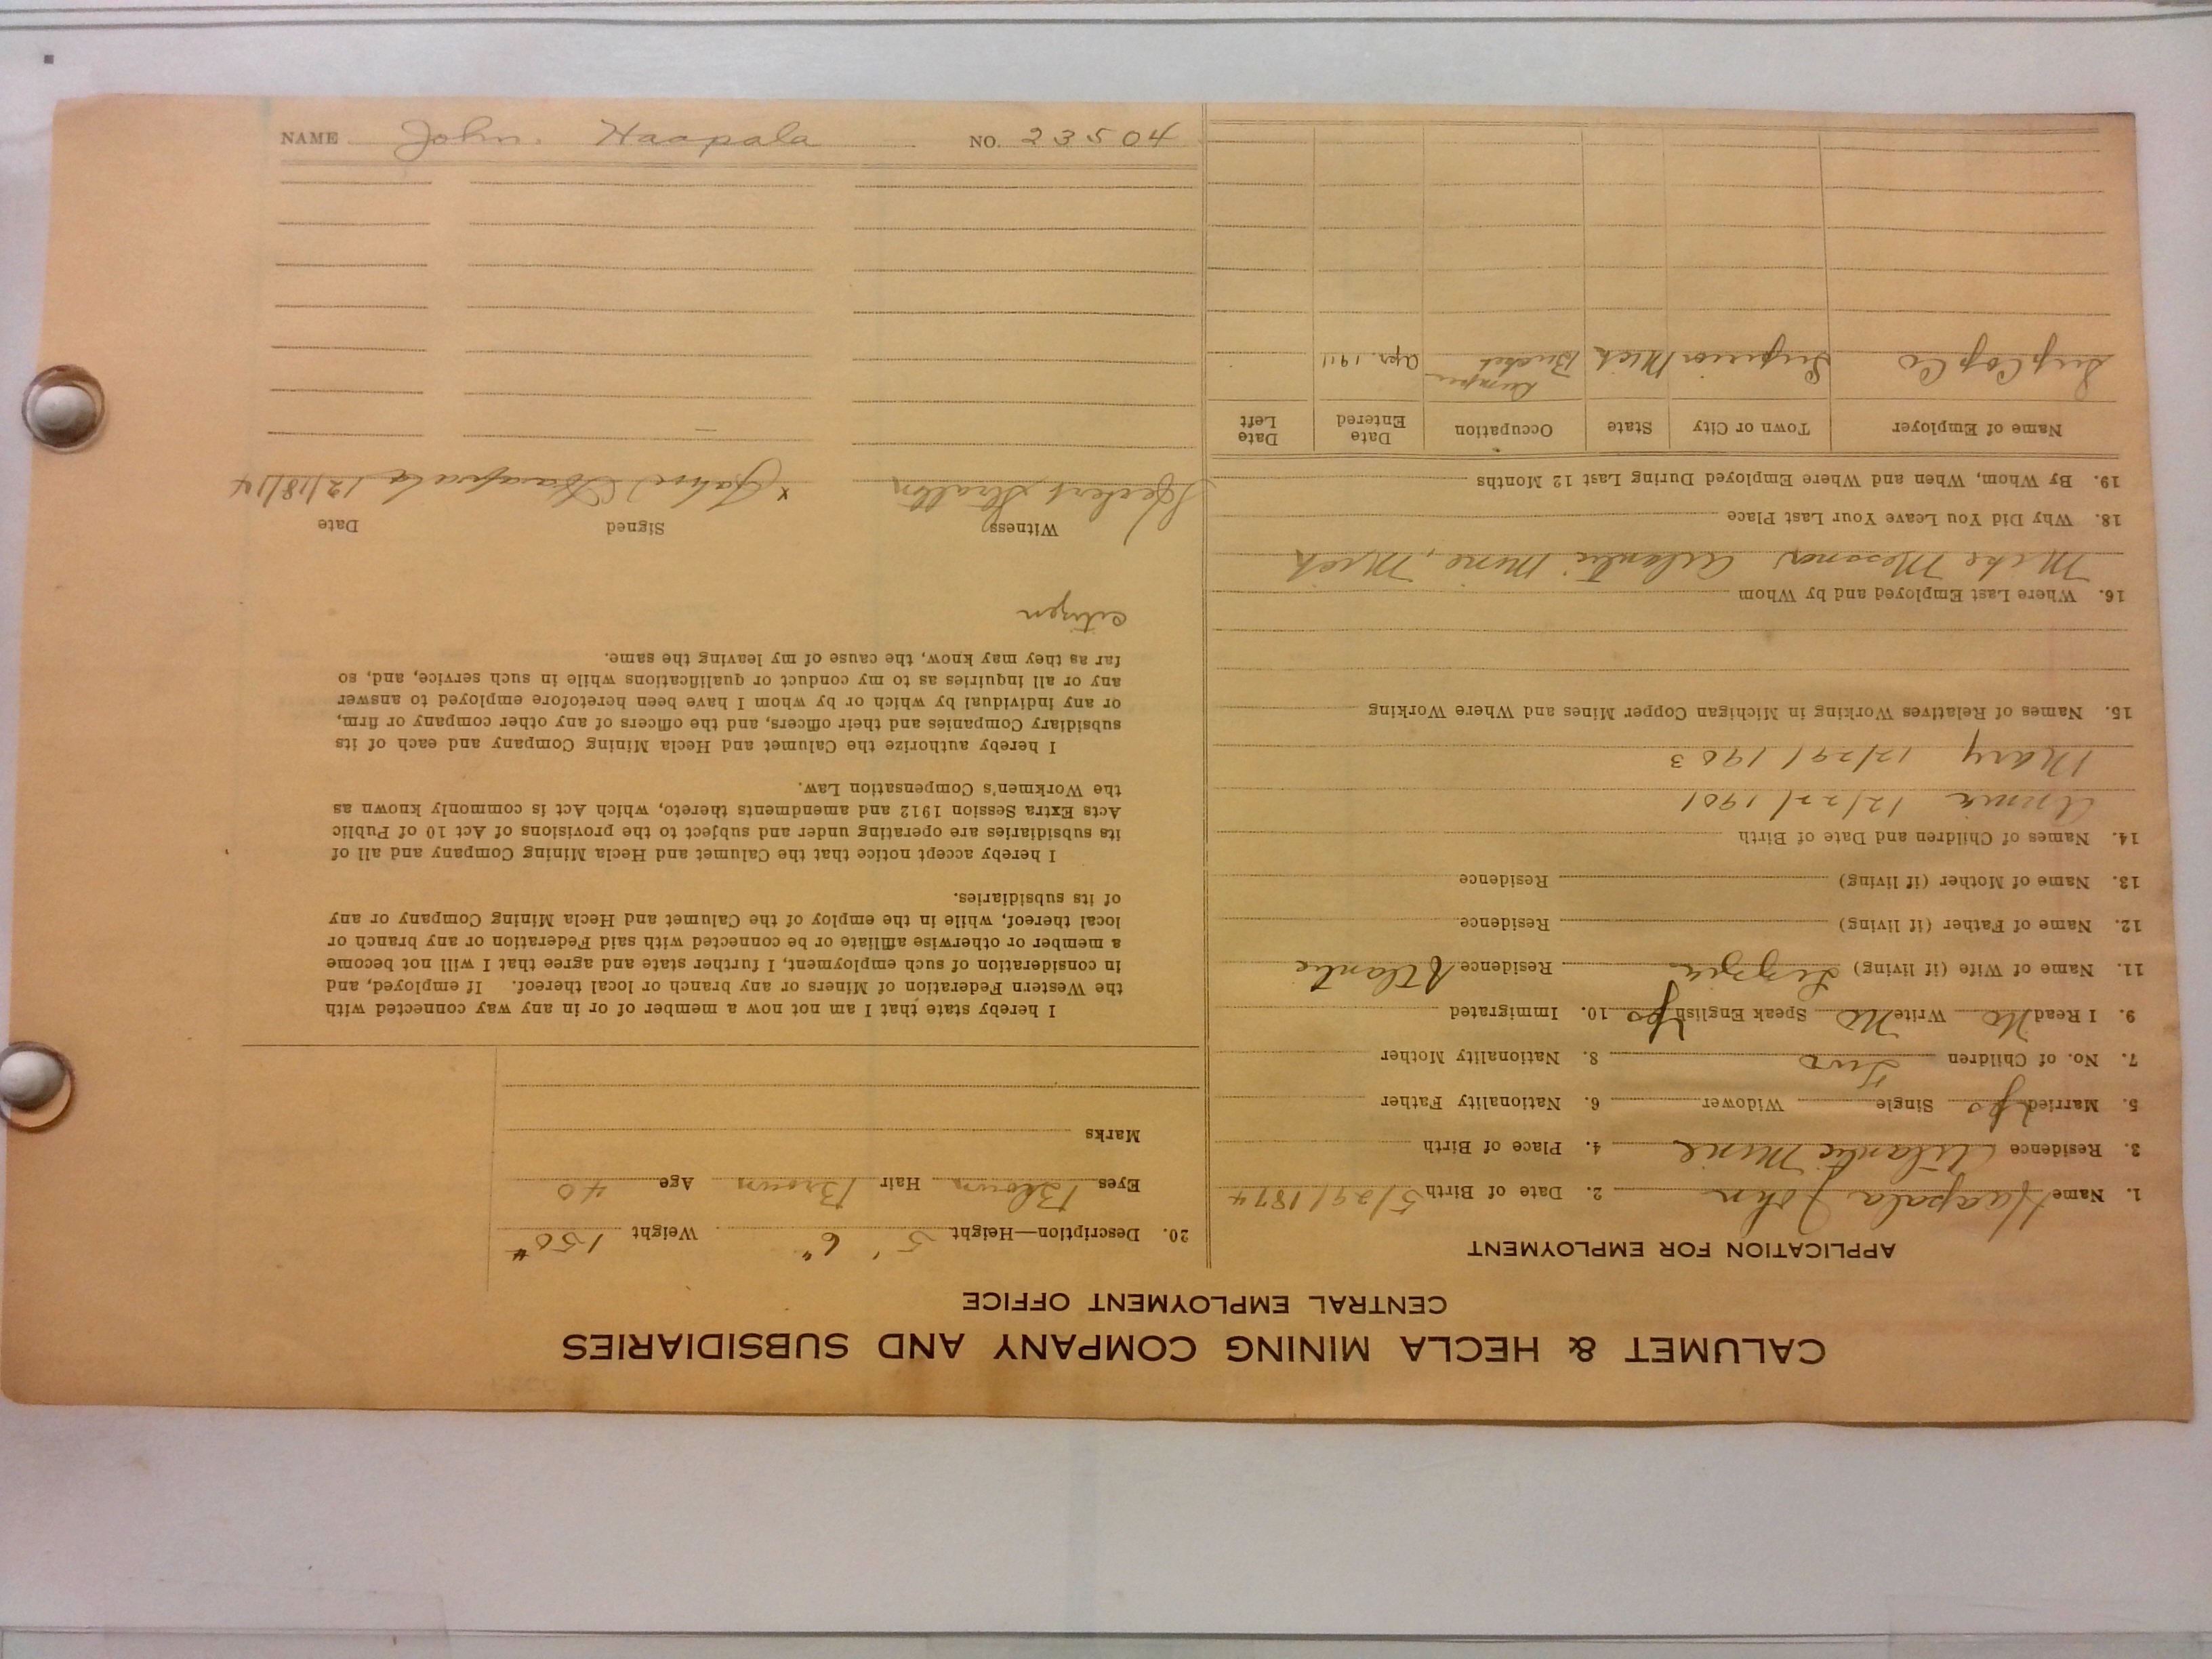 CALUMET & HECLA MINING COMPANY AND SUBSIDIARIES
CENTRAL EMPLOYMENT OFFICE
APPLICATION FOR EMPLOYMENT
1. Name Haapala John 2. Date of Birth 5/29/1874
3. Residence Atlantic Mine 4. Place of Birth
5. Married Yes Single Widower 6. Nationality Father
7. No. of Children Two 8. Nationality Mother
9. I Read No Write No Speak English Yes 10. Immigrated
11. Name of Wife (if living) Lizzie Residence Atlantic
12. Name of Father (if living) Residence
13. Name of Mother (if living) Residence
14. Names of Children and Date of Birth
12/22/1901
Mary 12/29/1903
15. Names of Relatives Working in Michigan Copper Mines and Where Working
16. Where Last Employed and by Whom
Mike Atlantic Mine, Mich
18. Why Did You Leave Your Last Place
19. By Whom, When and Where Employed During Last 12 Months
Name of Employer Town or City State Occupation Date Entered Date Left
Sup Cop Co Superior Mich Bucket Dumper Apr. 1911
20. Description—Height 5' 6" Weight 150#
Eyes Brown Hair Brown Age 40
Marks
I hereby state that I am not now a member of or in any way connected with
the Western Federation of Miners or any branch or local thereof. If employed, and
in consideration of such employment, I further state and agree that I will not become
a member or otherwise affiliate or be connected with said Federation or any branch or
local thereof, while in the employ of the Calumet and Hecla Mining Company or any
of its subsidiaries.
I hereby accept notice that the Calumet and Hecla Mining Company and all of
its subsidiaries are operating under and subject to the provisions of Act 10 of Public
Acts Extra Session 1912 and amendments thereto, which Act is commonly known as
the Workmen's Compensation Law.
I hereby authorize the Calumet and Hecla Mining Company and each of its
subsidiary Companies and their officers, and the officers of any other company or firm,
or any individual by which or by whom I have been heretofore employed to answer
any or all inquiries as to my conduct or qualifications while in such service, and, so
far as they may know, the cause of my leaving the same.
citizen
Witness Signed Date
x John Haapala 12/18/14
NAME John Haapala NO. 23504